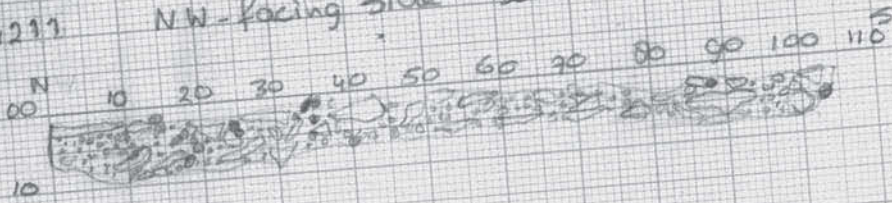 1211 NW-facing
N S
00 10 20 30 40 50 60 70 80 90 100 110
10